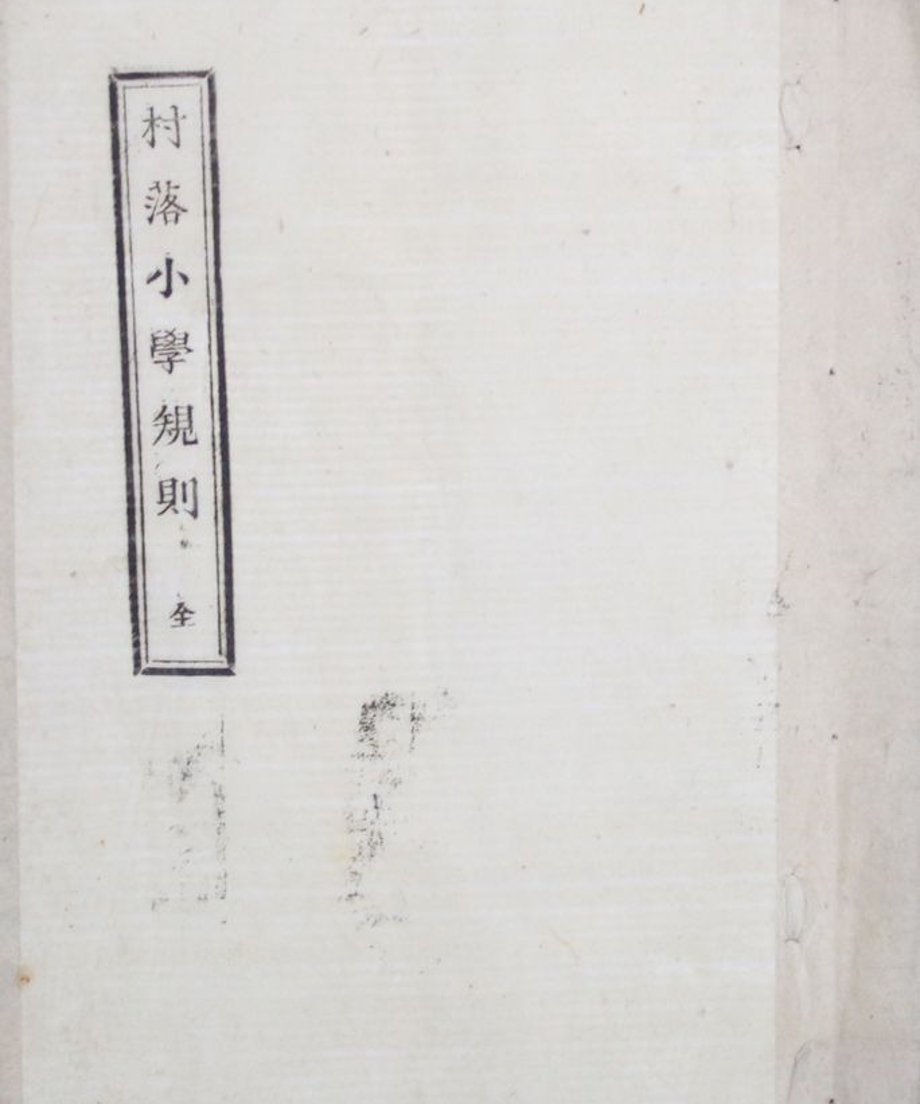 村落小學規則 全